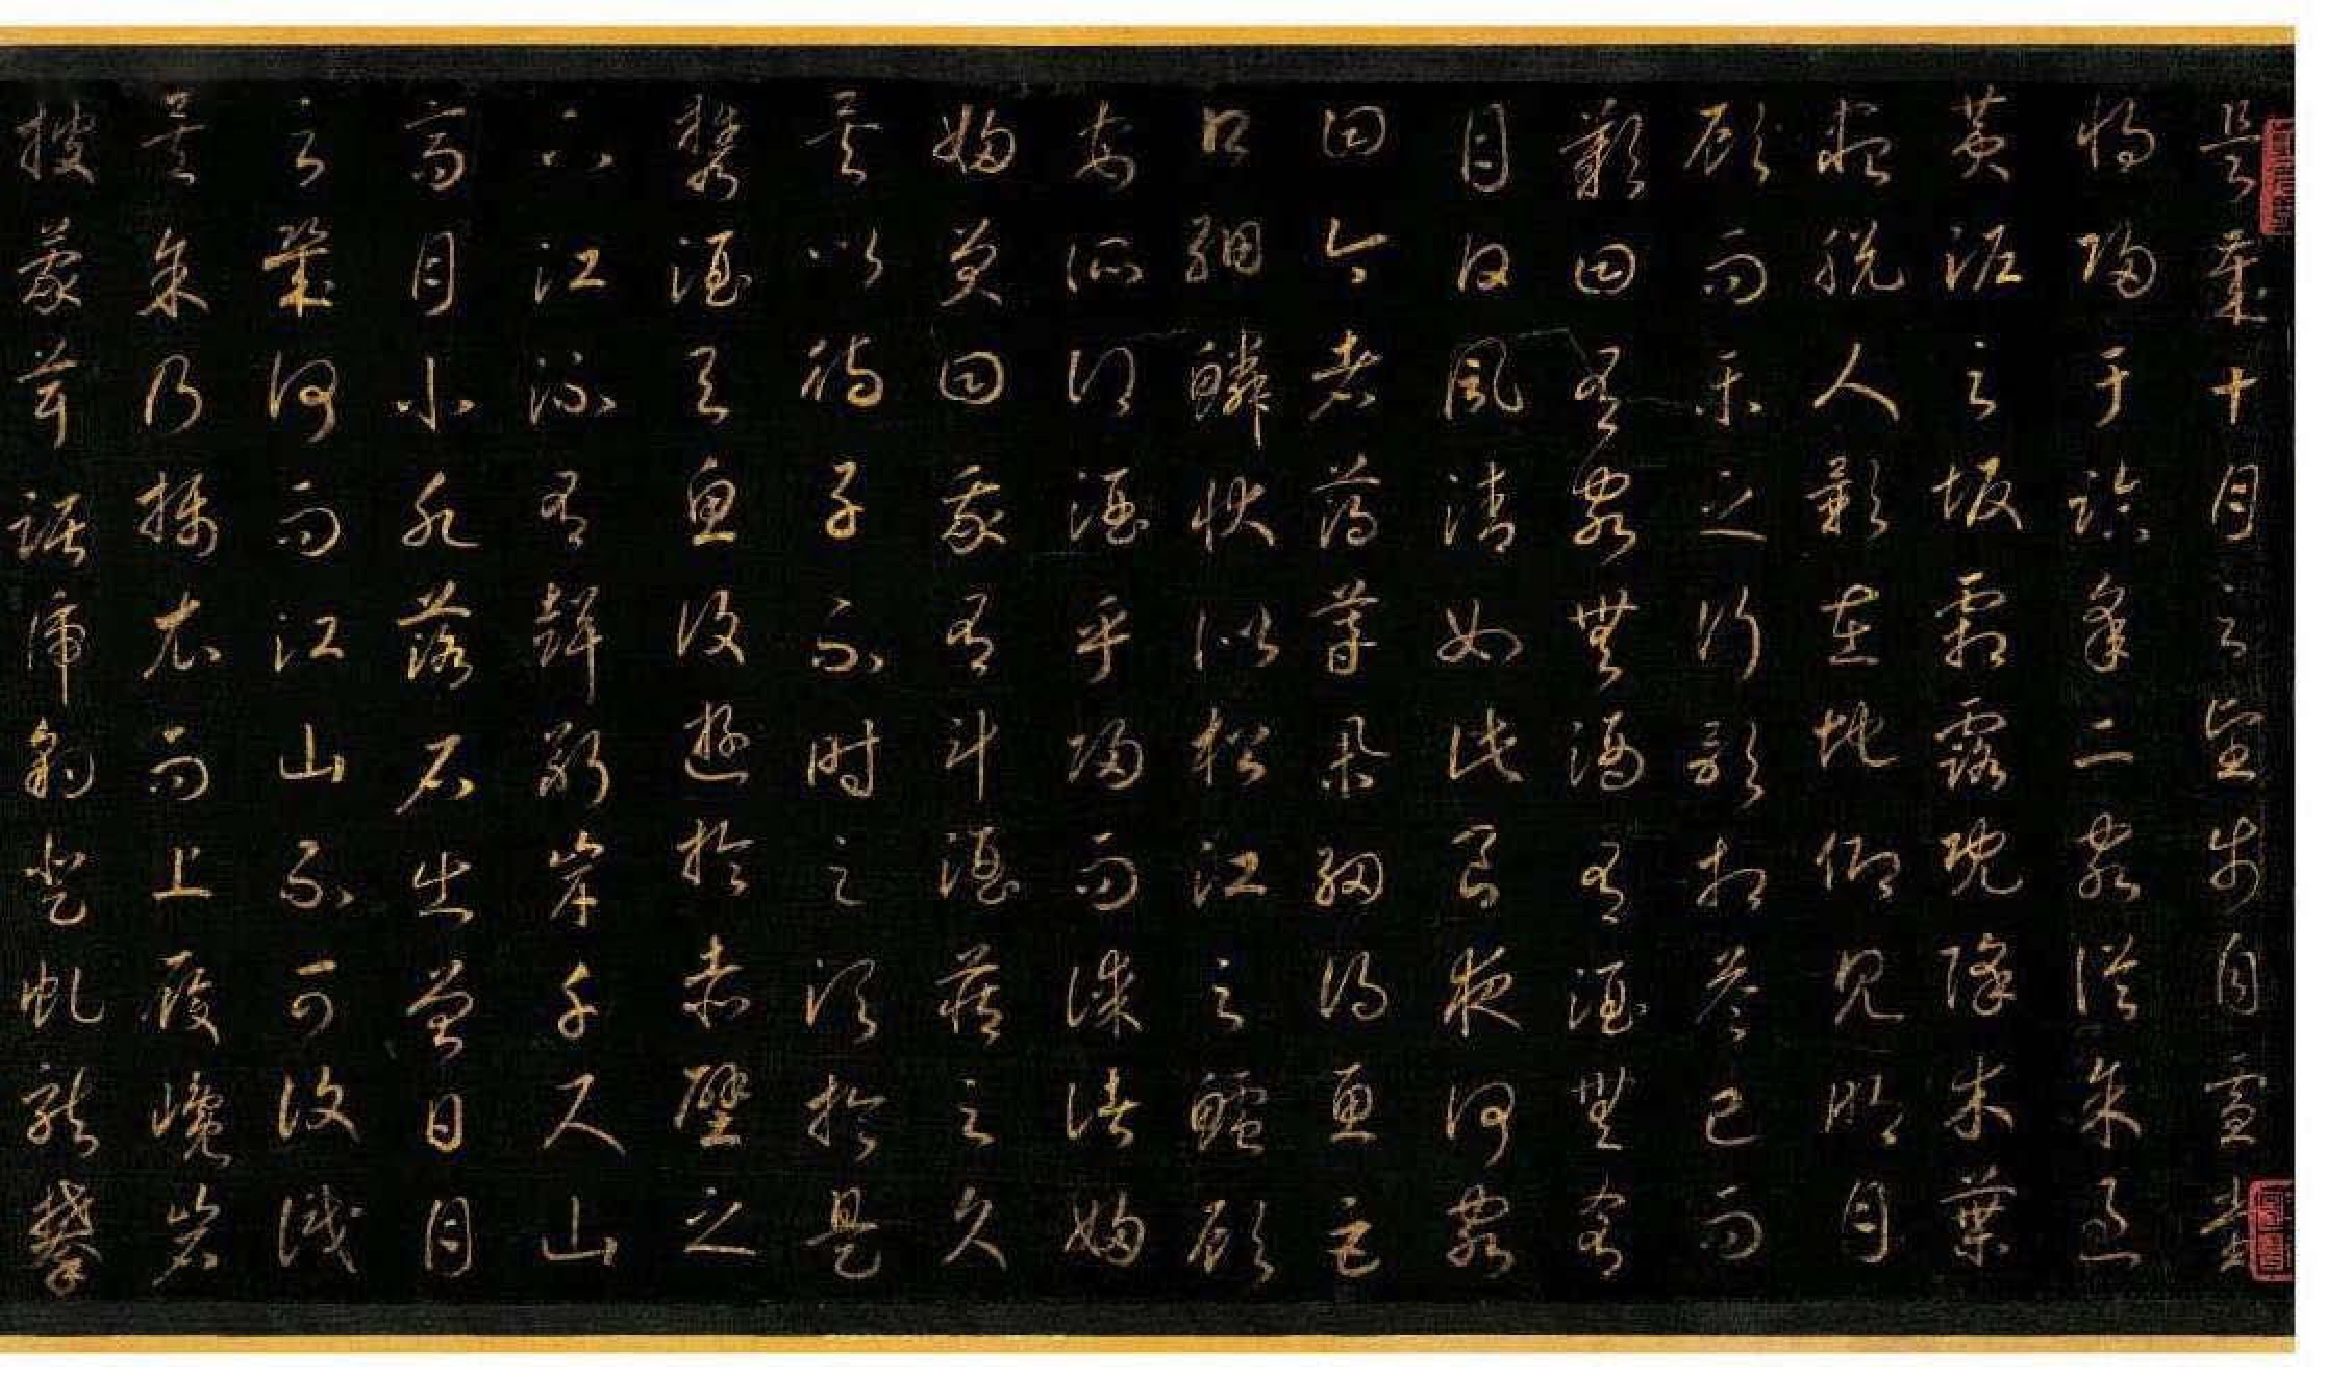 是歲十月之望步自雪堂
將歸于臨皋二客從余過
黃泥之坂霜露既降木葉
盡脫人影在地仰見明月
顧而樂之行歌相答已而
歎曰有客無酒有酒無肴
月白風清如此良夜何客
曰今者薄暮舉網得魚巨
口細鱗狀似松江之鱸顧
安所得酒乎歸而謀諸婦
婦笑曰我有斗酒藏之久
矣以待子不時之須於是
攜酒與魚復遊於赤壁之
下江流有聲斷岸千尺山
高月小水落石出曾日月
之幾何而江山不可復識
矣余乃攝衣而上履巉岩
披蒙茸踞虎豹登虬龍攀